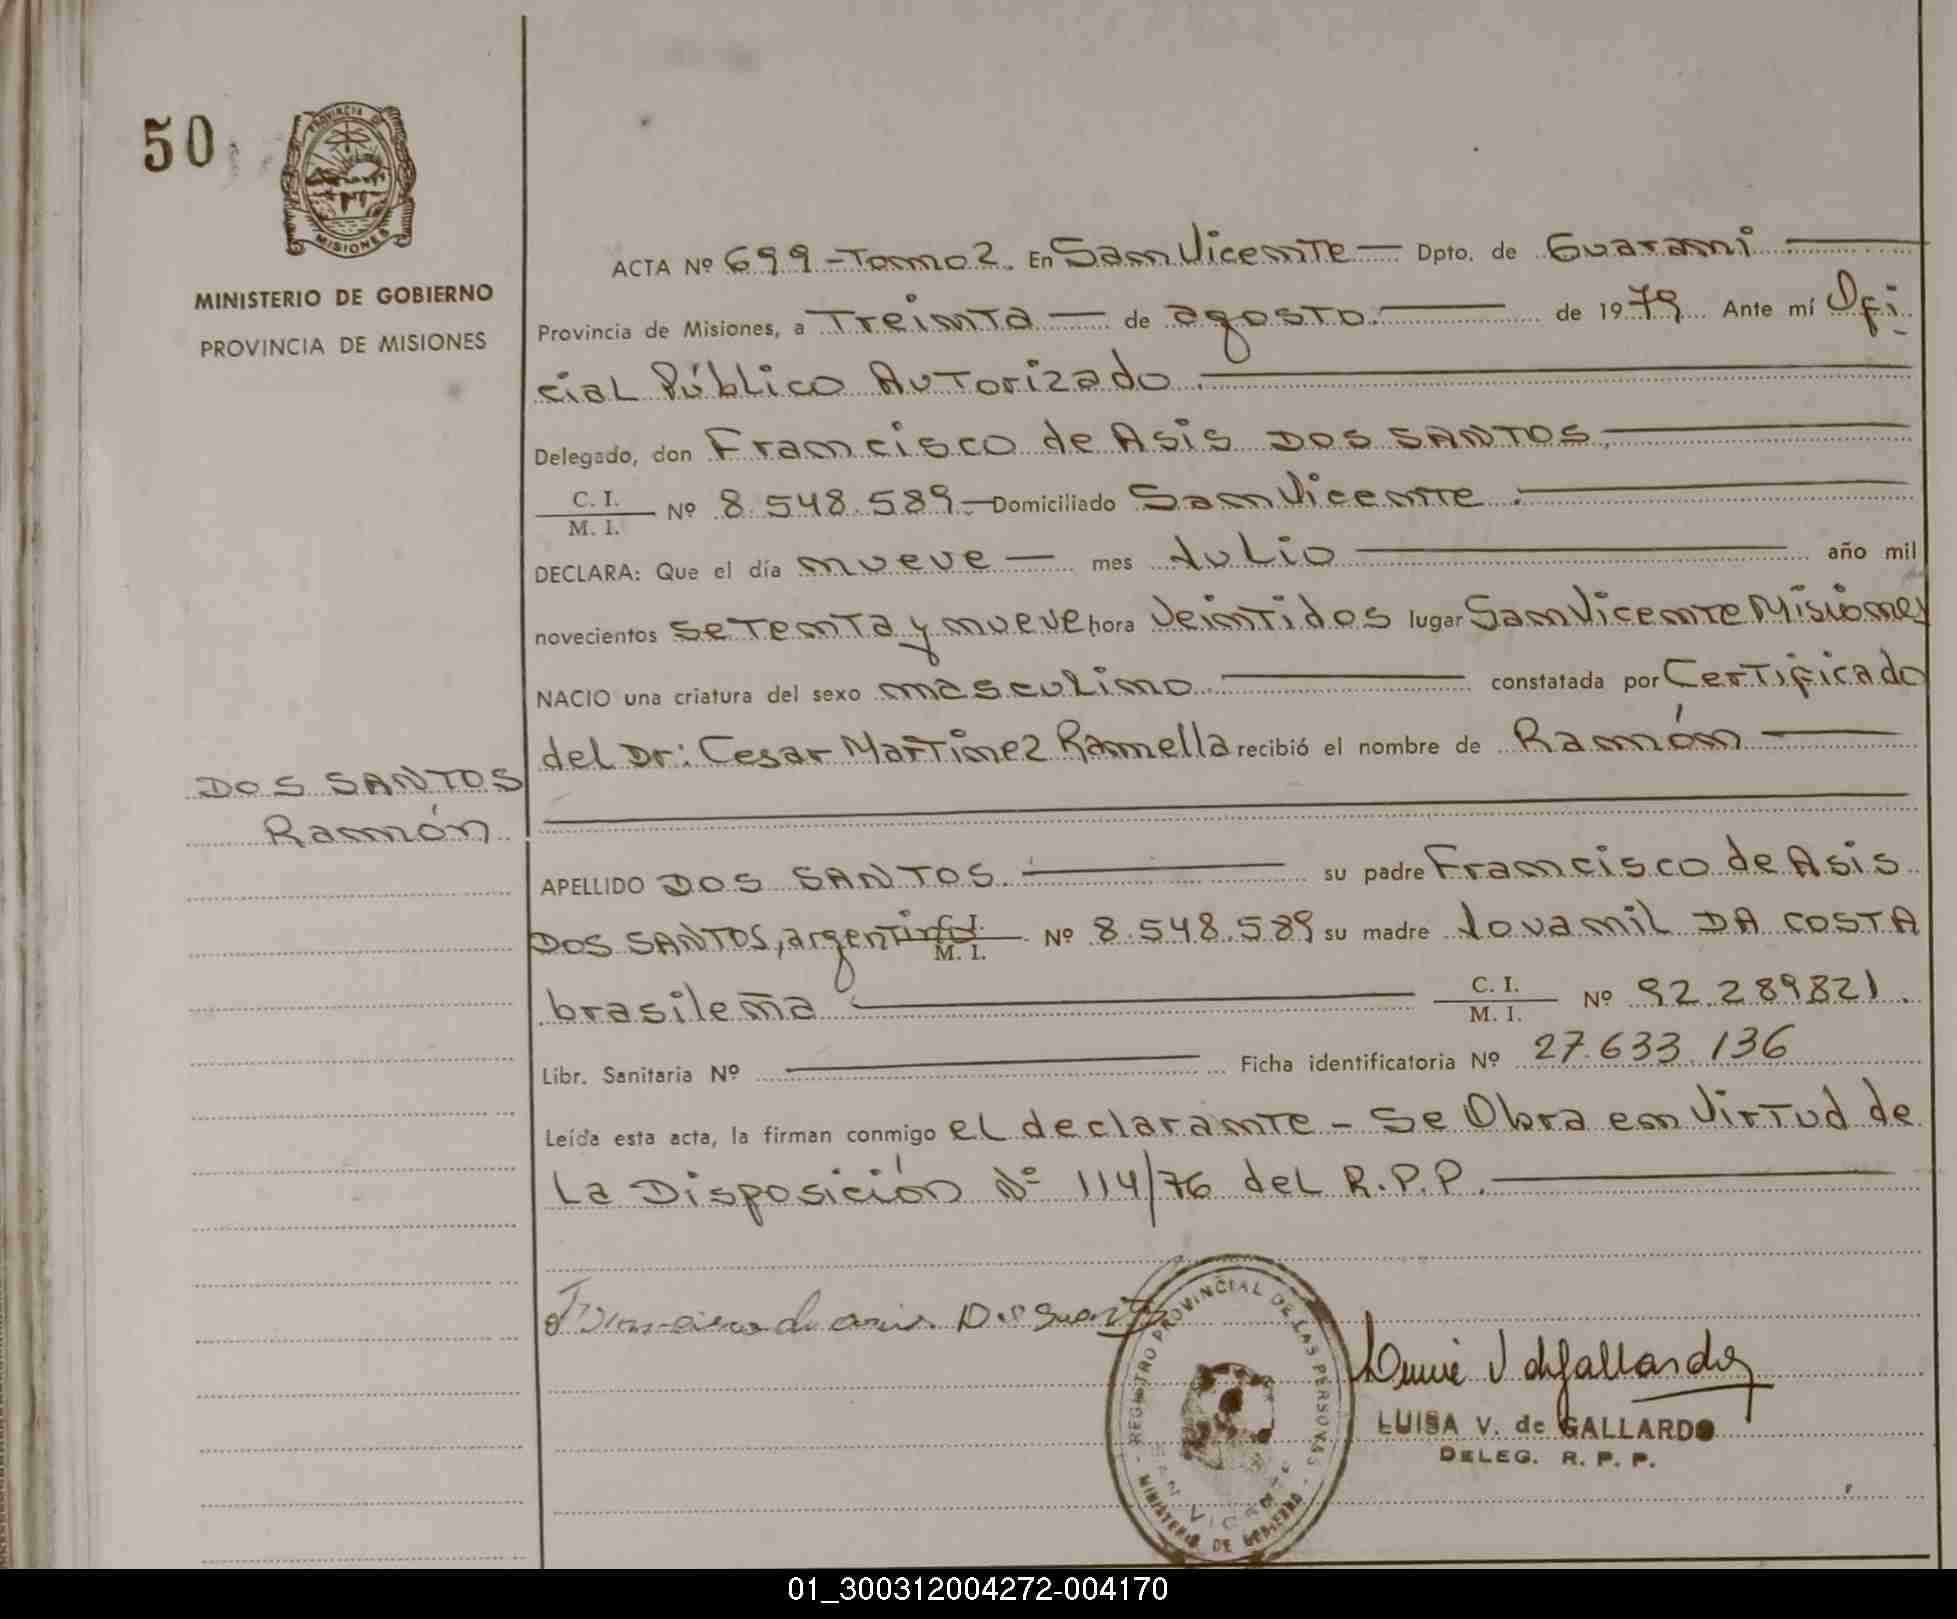 50
PROVINCIA DE
MISIONES
MINISTERIO DE GOBIERNO
PROVINCIA DE MISIONES
ACTA Nº 699 - Tomo 2. En San Vicente — Dpto. de Guaraní —
Provincia de Misiones, a Treinta — de agosto. — de 1979. Ante mí Ofi
cial Público Autorizado. —
Delegado, don Francisco de Asis DOS SANTOS. —
C. I.
M. I. Nº 8.548.589.— Domiciliado San Vicente. —
DECLARA: Que el día nueve — mes Julio — año mil
novecientos setenta y nueve hora Veintidos lugar San Vicente Misiones
NACIO una criatura del sexo masculino — constatada por Certificado
del Dr: Cesar Martinez Ramella recibió el nombre de Ramón —
DOS SANTOS
Ramón
APELLIDO DOS SANTOS. — su padre Francisco de Asis
DOS SANTOS, argentino C. I.
M. I. Nº 8.548.589 su madre Jovamil DA COSTA
brasileña — C. I.
M. I. Nº 92.289821.
Libr. Sanitaria Nº — Ficha identificatoria Nº 27.633.136
Leída esta acta, la firman conmigo el declarante - Se Obra en Virtud de
La Disposición Nº 114/76 del R.P.P. —
REGISTRO PROVINCIAL DE LAS PERSONAS
SAN VICENTE
MINISTERIO DE GOBIERNO
LUISA V. de GALLARDO
DELEG. R. P. P.
01_300312004272-004170